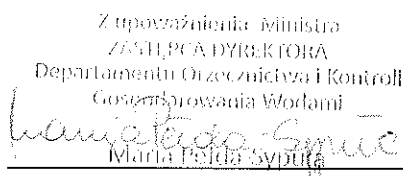 Z upoważnienia Ministra
ZASTĘPCA DYREKTORA
Departamentu Orzecznictwa i Kontroli
Gospodarowania Wodami
Maria